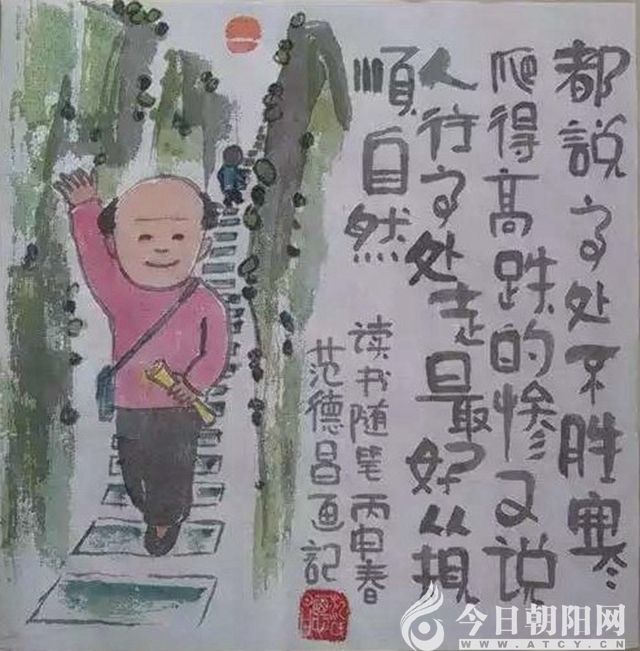 都說高处不胜寒
爬得高跌的惨又说
人往高处走最好从規
順自然
读书随笔丙申春
范德昌画記
今日朝阳网
WWW.ATCY.CN